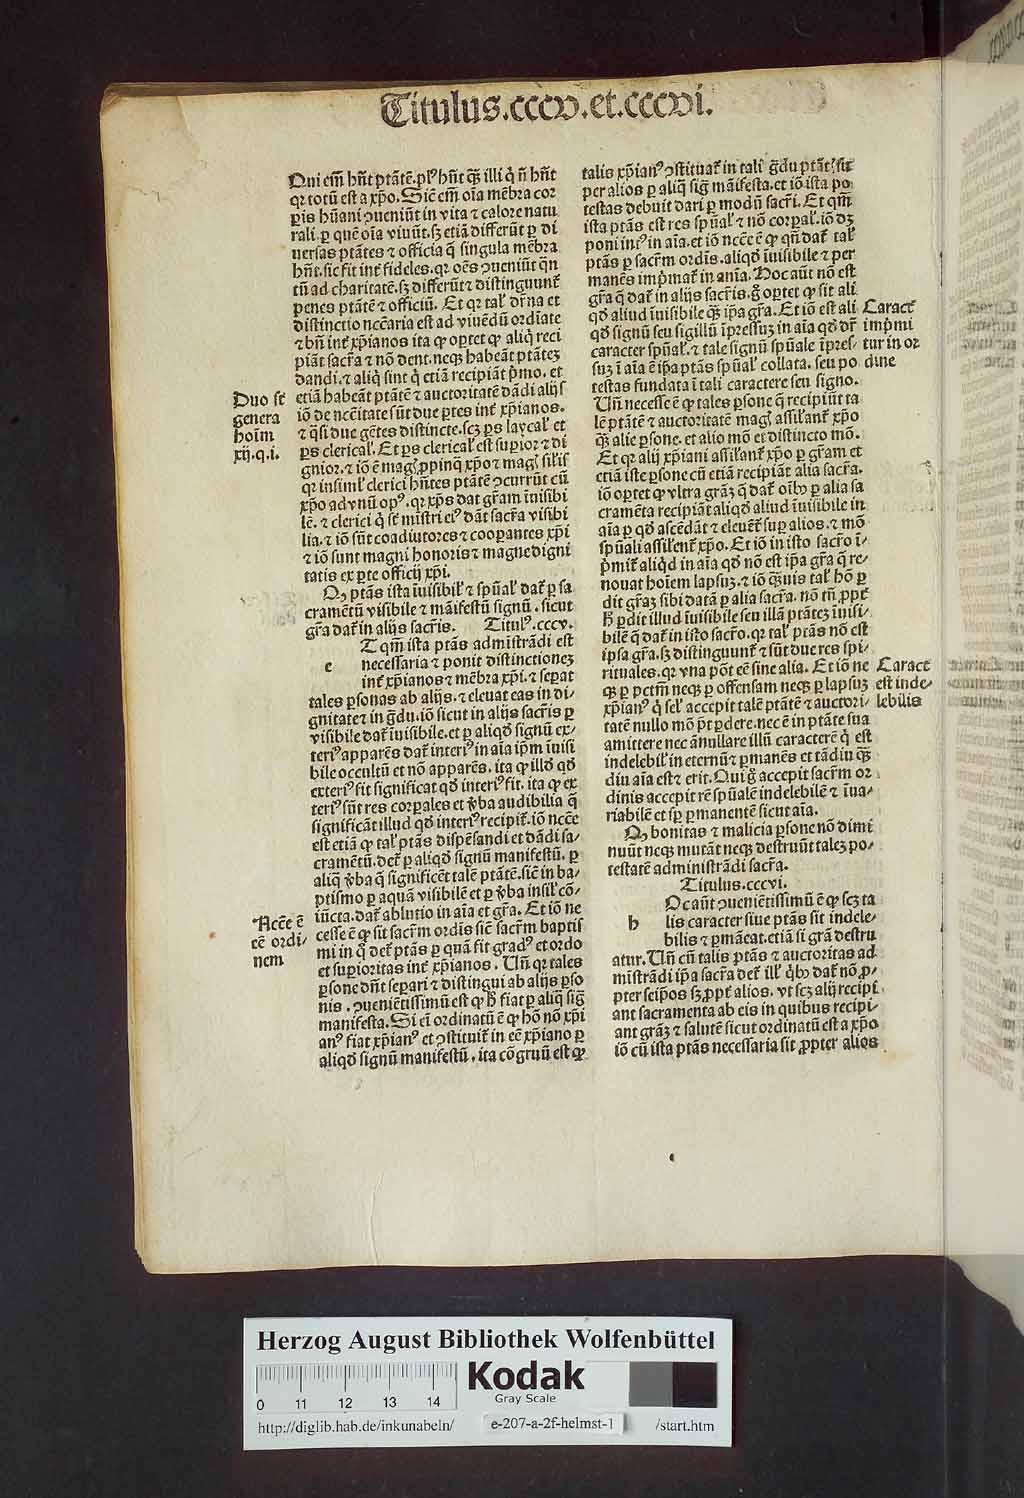 Titulus.cccv.et.cccvi.
Qui em̄ hn̄t ptātē.pl⁹ hn̄t q̄ꝫ illi q̇ nō hn̄t
qꝛ totū est a xp̄o. Sic̄ em̄ oīa mēbra cor
pꝛis hūani ꝯueniūt in vita ⁊ calore natu
rali.ꝑ quē oīa viuūt.sꝫ etiā differūt ꝑ di
uersas ptātes ⁊ officia q̄ singula mēbra
hn̄t.sic fit int̄ fideles.qꝛ oēs ꝯueniūt q̄n
tū ad charitatē.sꝫ differūt ⁊ distinguunt̄
penes ptātē ⁊ officiū. Et qꝛ tal̄ dr̄na et
distinctio nec̄aria est ad viuēdū ordīate
⁊ bn̄ int̄ xp̄ianos ita ꝙ optet ꝙ aliq̇ reci
piāt sacr̄a ⁊ nō dent.neqꝫ habeāt ptāteꝫ
dandi.⁊ aliq̇ sint q̇ etiā recipiāt p̄mo. et
etiā habeāt ptātē ⁊ auctoritatē dādi alijs
iō de nc̄eitate sūt due ꝑtes int̄ xp̄ianos.
⁊ q̄si due gētes distincte.scꝫ ꝑs laycal̄ et
ꝑs clerical̄. Et ꝑs clerical̄ est suꝑior ⁊ di
gnior.⁊ iō ē mag̣ ꝓpinq̄ xp̄o ⁊ mag̣ sil̄is
qꝛ insimil̄ clerici hn̄tes ptātē ꝯcurrūt cū
xp̄o ad vnū op⁹.qꝛ xp̄s dat gr̄am īuisibi
lē.⁊ clerici q̇ sт̄ mīstri ei⁹ dāt sacr̄a visibi
lia.⁊ iō sūt coadiutores ⁊ cooꝑantes xp̄i
⁊ iō sunt magni honoris ⁊ magne digni
tatis ex ꝑte officij xp̄i.
Qꝫ ptās ista īuisibil̄ ⁊ spūal̄ dat̄ ꝑ sa
cramētū visibile ⁊ māifestū signū. sicut
gr̄a dat̄ in alijs sacr̄is. Titul⁹.cccv.
e T qm̄ ista ptās admīstrādi est
necessaria ⁊ ponit distinctioneꝫ
int̄ xp̄ianos ⁊ mēbra xp̄i.⁊ seꝑat
tales ꝑsonas ab alijs.⁊ eleuat eas in di⸗
gnitate ⁊ in g̈du.iō sicut in alijs sacr̄is ꝑ
visibile dat̄ īuisibile.et ꝑ aliqđ signū ex⸗
teri⁹ apparēs dat̄ interi⁹ in aīa ip̄m īuisi
bile occultū et nō apparēs. ita ꝙ illđ qđ
exteri⁹ fit significat qđ interi⁹ fit. ita ꝙ ex
teri⁹ sūt res corꝑales et v̄ba audibilia q̄
significāt illud qđ interi⁹ recipit̄.iō nc̄ce
est etiā ꝙ tal̄ ptās dispēsandi et dādi sa⸗
cramētū.det̄ ꝑ aliqđ signū manifestū. ꝑ
aliq̄ v̄ba q̄ significēt talē ptātē.sic̄ in ba⸗
ptismo ꝑ aquā visibilē et ꝑ v̄ba insil̄ cō⸗
iūcta.dat̄ ablutio in aīa et gr̄a. Et iō ne
cesse ē ꝙ sit sacr̄m ordīs sic̄ sacr̄m baptis
mi in q̊ det̄ ptās ꝑ quā fit grad⁹ et ordo
et suꝑioritas int̄ xp̄ianos. Un̄ qꝛ tales
ꝑsone dn̄t seꝑari ⁊ distingui ab alijs ꝑso
nis. ꝯueniētissimū est ꝙ ħ fiat ꝑ aliq̄ sig̅
manifesta. Si ei̅ ordinatū ē ꝙ hō nō xp̄i
an⁹ fiat xp̄ian⁹ et ꝯstituit̄ in eē xp̄iano ꝑ
aliqđ signū manifestū. ita cōgruū est ꝙ
Duo sт̄
genera
hoīm
xij.q.i.
Necc̄e ē
eē ordi⸗
nem
talis xp̄ian⁹ ꝯstituat̄ in tali g̈du ptāt̄.sit
ꝑ alios ꝑ aliq̄ sig̅ māifesta.et iō ista po
testas debuit dari ꝑ modū sacr̄i. Et qm̄
ista ptās est res spūal̄ ⁊ nō corꝑal̄.iō dꝫ
poni int⁹ in aīa.et iō nc̄ce ē ꝙ qn̄ dat̄ tal̄
ptās ꝑ sacr̄m ordīs.aliqđ īuisibile ⁊ per
manēs imp̄mat̄ in aīa. Hoc aūt nō est
gr̄a q̄ dat̄ in alijs sacr̄is.g̊ oꝑtet ꝙ sit ali
qđ aliud īuisibile q̄ꝫ ip̄a gr̄a. Et iō est ali
qđ signū seu sigillū īpressuꝫ in aīa qđ dr̄
caracter spūal̄.⁊ tale signū spūale īpres⸗
suꝫ ī aīa ē ip̄a ptās spūal̄ collata. seu po
testas fundata ī tali caractere seu signo.
Un̄ necesse ē ꝙ tales ꝑsone q̄ recipiūt ta
lē ptātē ⁊ auctoritatē mag̣ assil̄ant̄ xp̄o
q̄ꝫ alie ꝑsone.et alio mō et distincto mō.
Et qꝛ alij xp̄iani assil̄ant̄ xp̄o ꝑ gr̄am et
etiā iste ꝑsone cū etiā recipiāt alia sacr̄a.
iō oꝑtet ꝙ vltra grāꝫ q̄ dat̄ oībꝰ ꝑ alia sa
cramēta recipiāt aliqđ aliud īuisibile in
aīa ꝑ qđ ascēdāt ⁊ eleuēt̄ suꝑ alios.⁊ mō
spūali assil̄ent̄ xp̄o. Et iō in isto sacr̄o ī⸗
p̄mit̄ aliqđ in aīa qđ nō est ip̄a gr̄a q̄ re⸗
nouat hoīem lapsuꝫ.⁊ iō q̄ꝫuis tal̄ hō ꝑ
dit grāꝫ sibi datā ꝑ alia sacr̄a. nō tn̄ ꝓpt̄
ħ ꝑdit illud īuisibile seu illā ptāteꝫ īuisi⸗
bilē q̄ dat̄ in isto sacr̄o.qꝛ tal̄ ptās nō est
ipsa gr̄a.sꝫ distinguunt̄ ⁊ sūt due res spi⸗
rituales.qꝛ vna pōt eē sine alia. Et iō ne
q̄ꝫ ꝑ pctm̄ neqꝫ ꝑ offensam neqꝫ ꝑ lapsuꝫ
xp̄ian⁹ q̇ sel̄ accepit talē ptātē ⁊ auctori⸗
tatē nullo mō pt̄ ꝑdere.nec ē in ptāte sua
amittere nec ānullare illū caracterē q̇ est
indelebil̄ in eternū ⁊ ꝑmanēs et tādiu q̄ꝫ
diu aīa est ⁊ erit. Qui g̊ accepit sacr̄m or
dinis accepit rē spūalē indelebilē ⁊ īua⸗
riabilē et sꝑ ꝑmanentē sicut aīa.
Qꝫ bonitas ⁊ malicia ꝑsone nō dimi
nuūt neqꝫ mutāt neqꝫ destruūt taleꝫ po⸗
testatē administrādi sacr̄a.
Titulus.cccvi.
h Oc aūt ꝯueniētissimū ē ꝙ scꝫ ta
lis caracter siue ptās sit indele⸗
bilis ⁊ ꝑmāeat.etiā si grā destru
atur. Un̄ cū talis ptās ⁊ auctoritas ad
mīstrādi ip̄a sacr̄a det̄ ill̄ q̇bꝰ dat̄ nō ꝓ⸗
pter seip̄os sꝫ ꝓpt̄ alios. vt scꝫ alij recipi
ant sacramenta ab eis in quibus recipi⸗
ant grāꝫ ⁊ salutē sicut ordinatū est a xp̄o
iō cū ista ptās necessaria sit ꝓpter alios
Caract̄
imp̄mi
tur in or
dine
Caract̄
est inde⸗
lebilis
Herzog August Bibliothek Wolfenbüttel
Kodak
Gray Scale
0 11 12 13 14
http://diglib.hab.de/inkunabeln/ e-207-a-2f-helmst-1 /start.htm